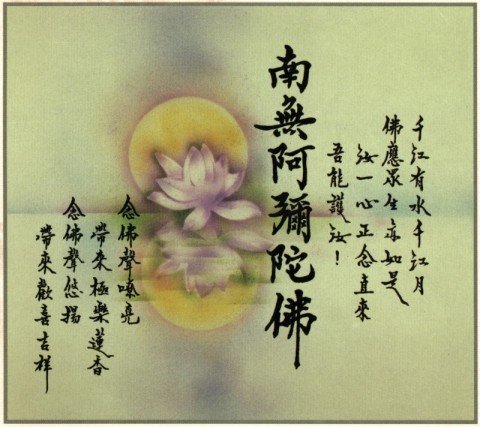 千江有水千江月
佛應眾生亦如是
汝一心正念直來
吾能護汝！
南無阿彌陀佛
念佛聲嘹亮
帶來極樂蓮香
念佛聲悠揚
帶來歡喜吉祥